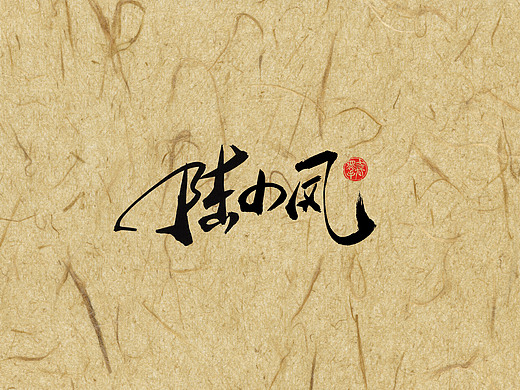 陆小凤